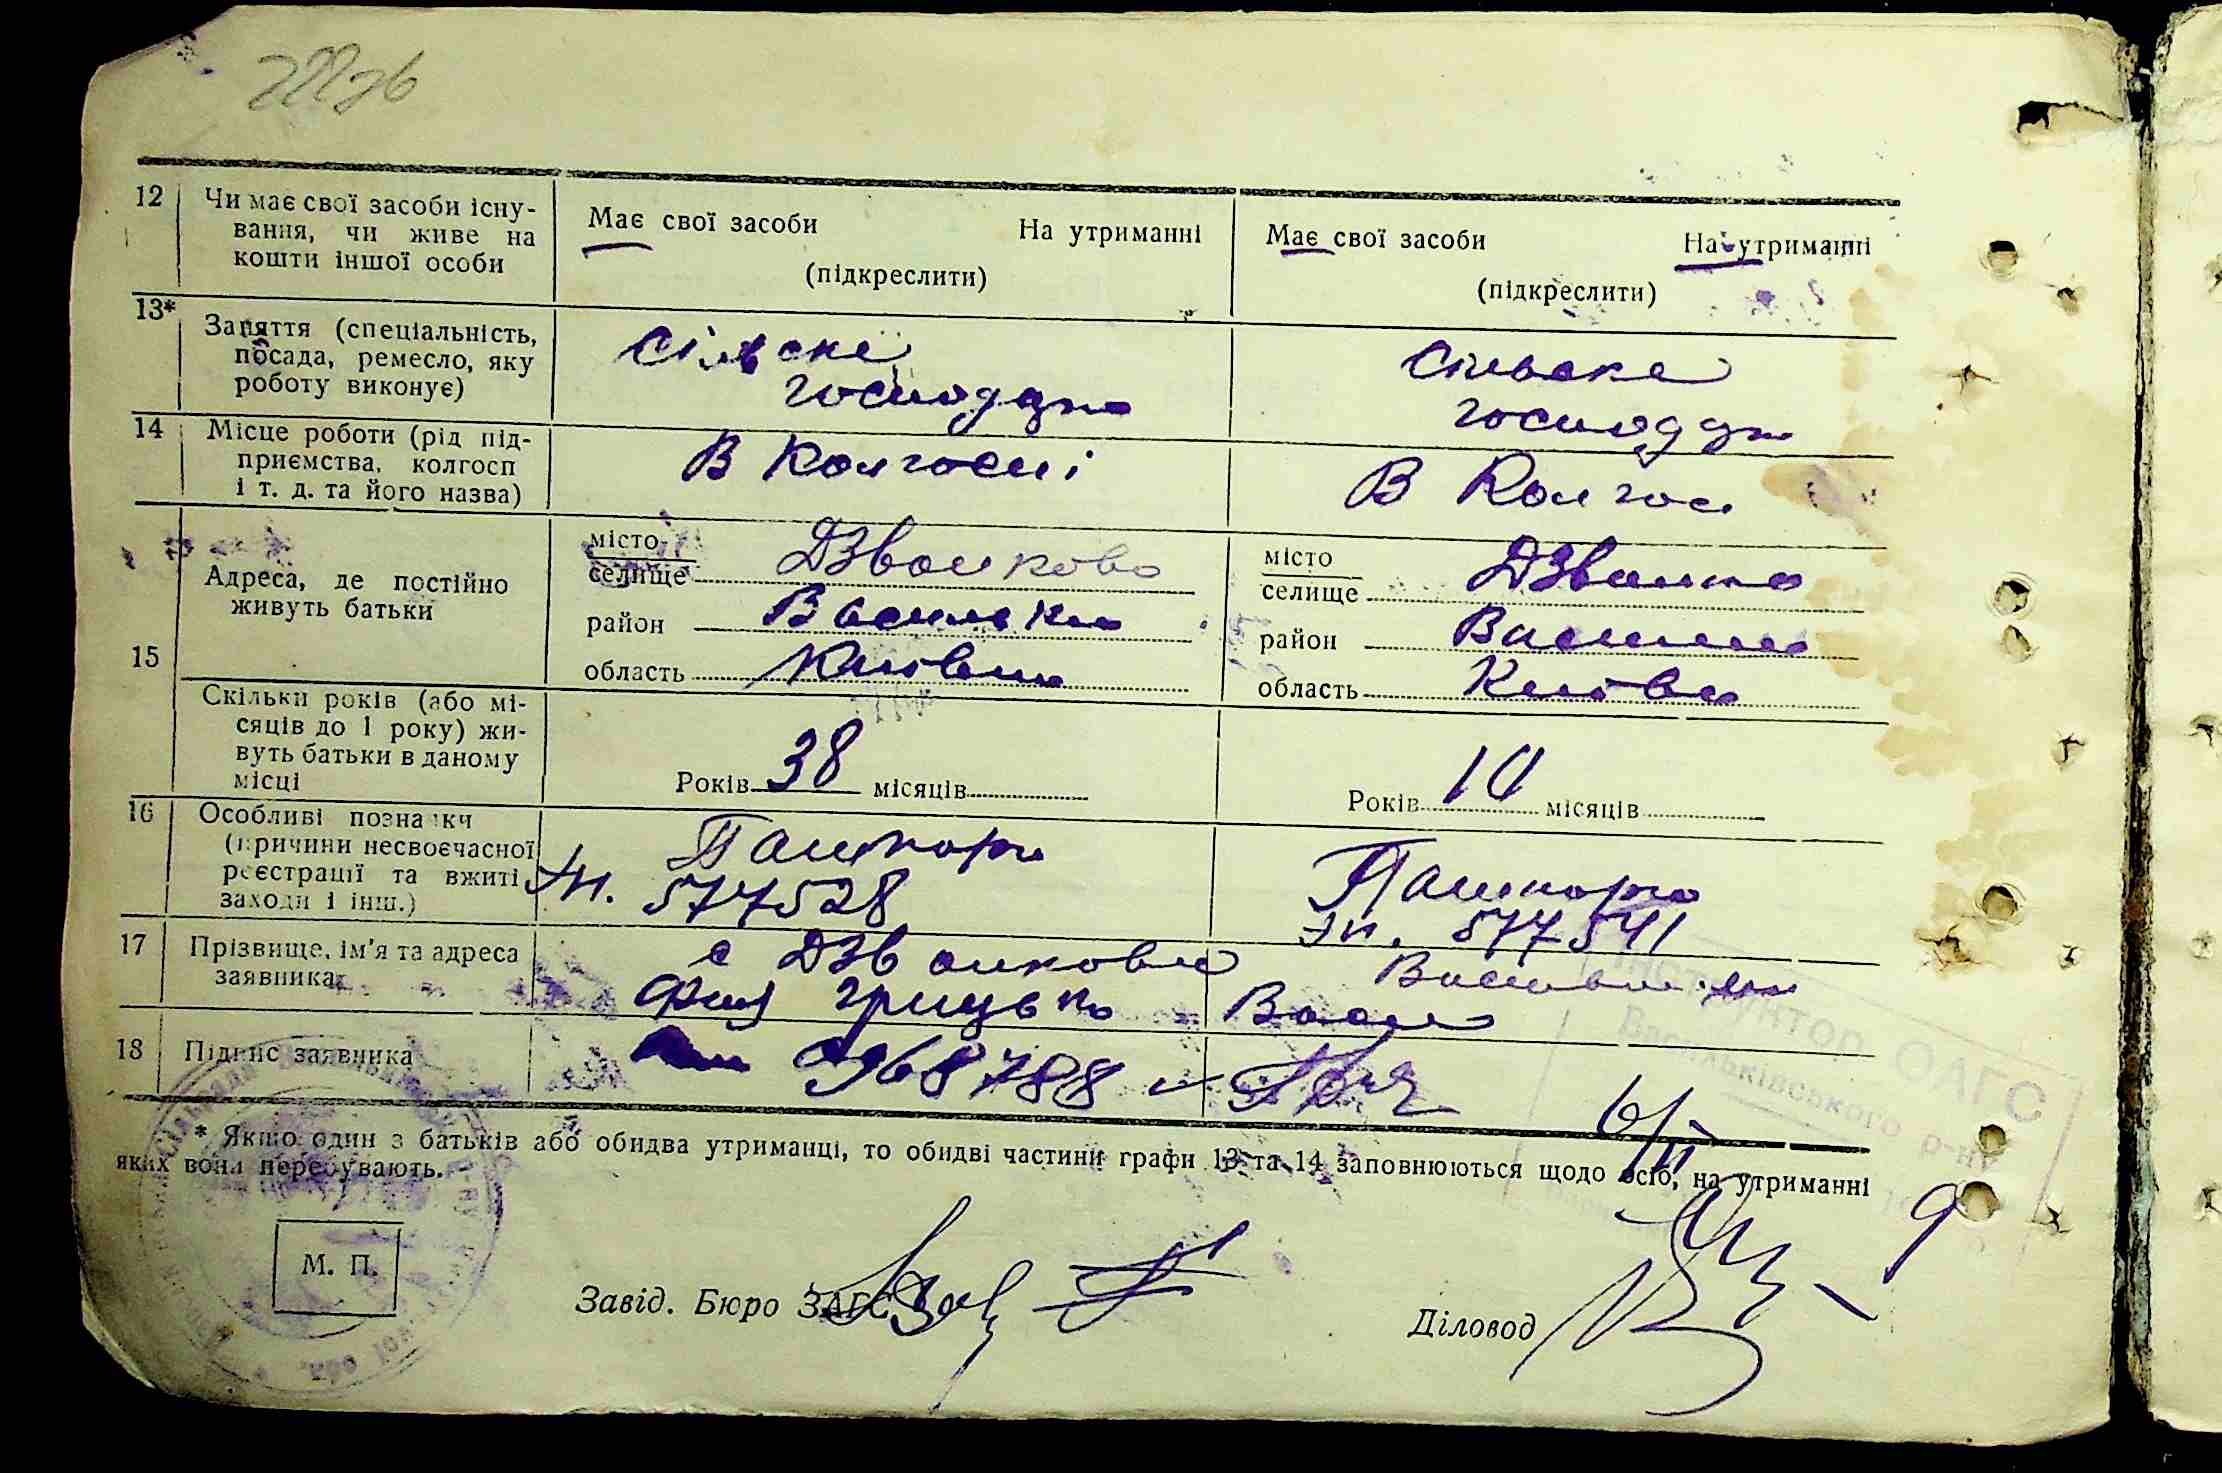 12 Чи має свої засоби існу-
вання, чи живе на
кошти іншої особи
Має свої засоби На утриманні
(підкреслити)
Має свої засоби На утриманні
(підкреслити)
13* Заняття (спеціальність,
посада, ремесло, яку
роботу виконує)
Сільске
господар
Сільске
господар
14 Місце роботи (рід під-
приємства, колгосп
і т. д. та його назва)
В Колгоспі
В Колгос
15 Адреса, де постійно
живуть батьки
місто
селище Дзвонково
район Васильк
область Київ
місто
селище Дзвонк
район Васил
область Київ
Скільки років (або мі-
сяців до 1 року) жи-
вуть батьки в даному
місці
Років 38 місяців
Років місяців
16 Особливі позначки
(причини несвоєчасної
реєстрації та вжиті
заходи і інш.)
Пашпорт
577528
Пашпорт
577541
17 Прізвище, ім'я та адреса
заявника
с Дзвонкова
Грицько Васил
18 Підпис заявника
968788
* Якщо один з батьків або обидва утриманці, то обидві частини графи 13 та 14 заповнюються щодо осіб, на утриманні
яких вони перебувають.
М. П.
Завід. Бюро ЗАГС
Діловод
Інструктор ОАГС
Васильківського р-ну